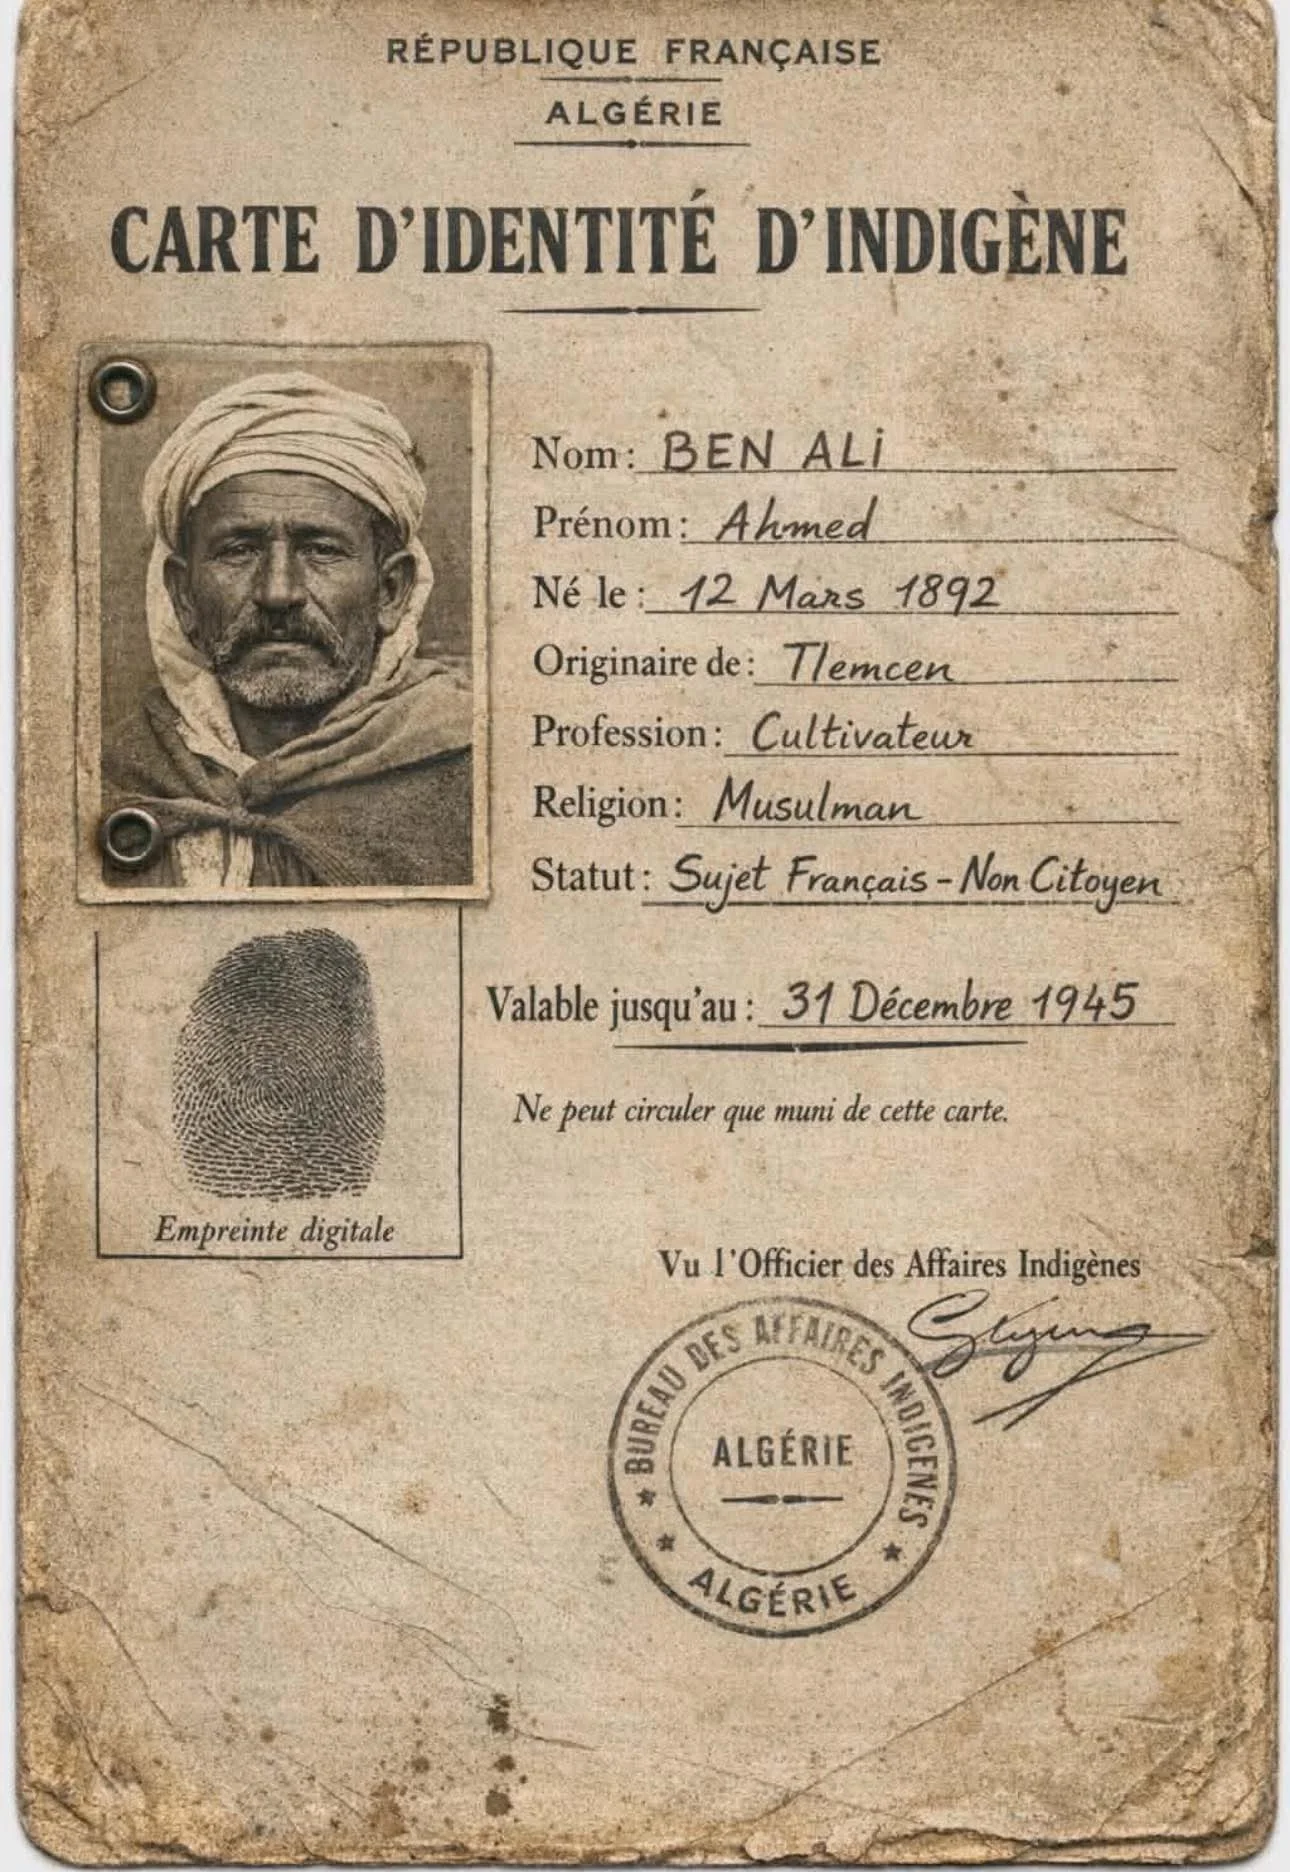 RÉPUBLIQUE FRANÇAISE
ALGÉRIE
CARTE D'IDENTITÉ D'INDIGÈNE
Nom : BEN ALi
Prénom : Ahmed
Né le : 12 Mars 1892
Originaire de : Tlemcen
Profession : Cultivateur
Religion : Musulman
Statut : Sujet Français - Non Citoyen
Valable jusqu'au : 31 Décembre 1945
Ne peut circuler que muni de cette carte.
Empreinte digitale
Vu l'Officier des Affaires Indigènes
BUREAU DES AFFAIRES INDIGENES
ALGÉRIE
ALGÉRIE